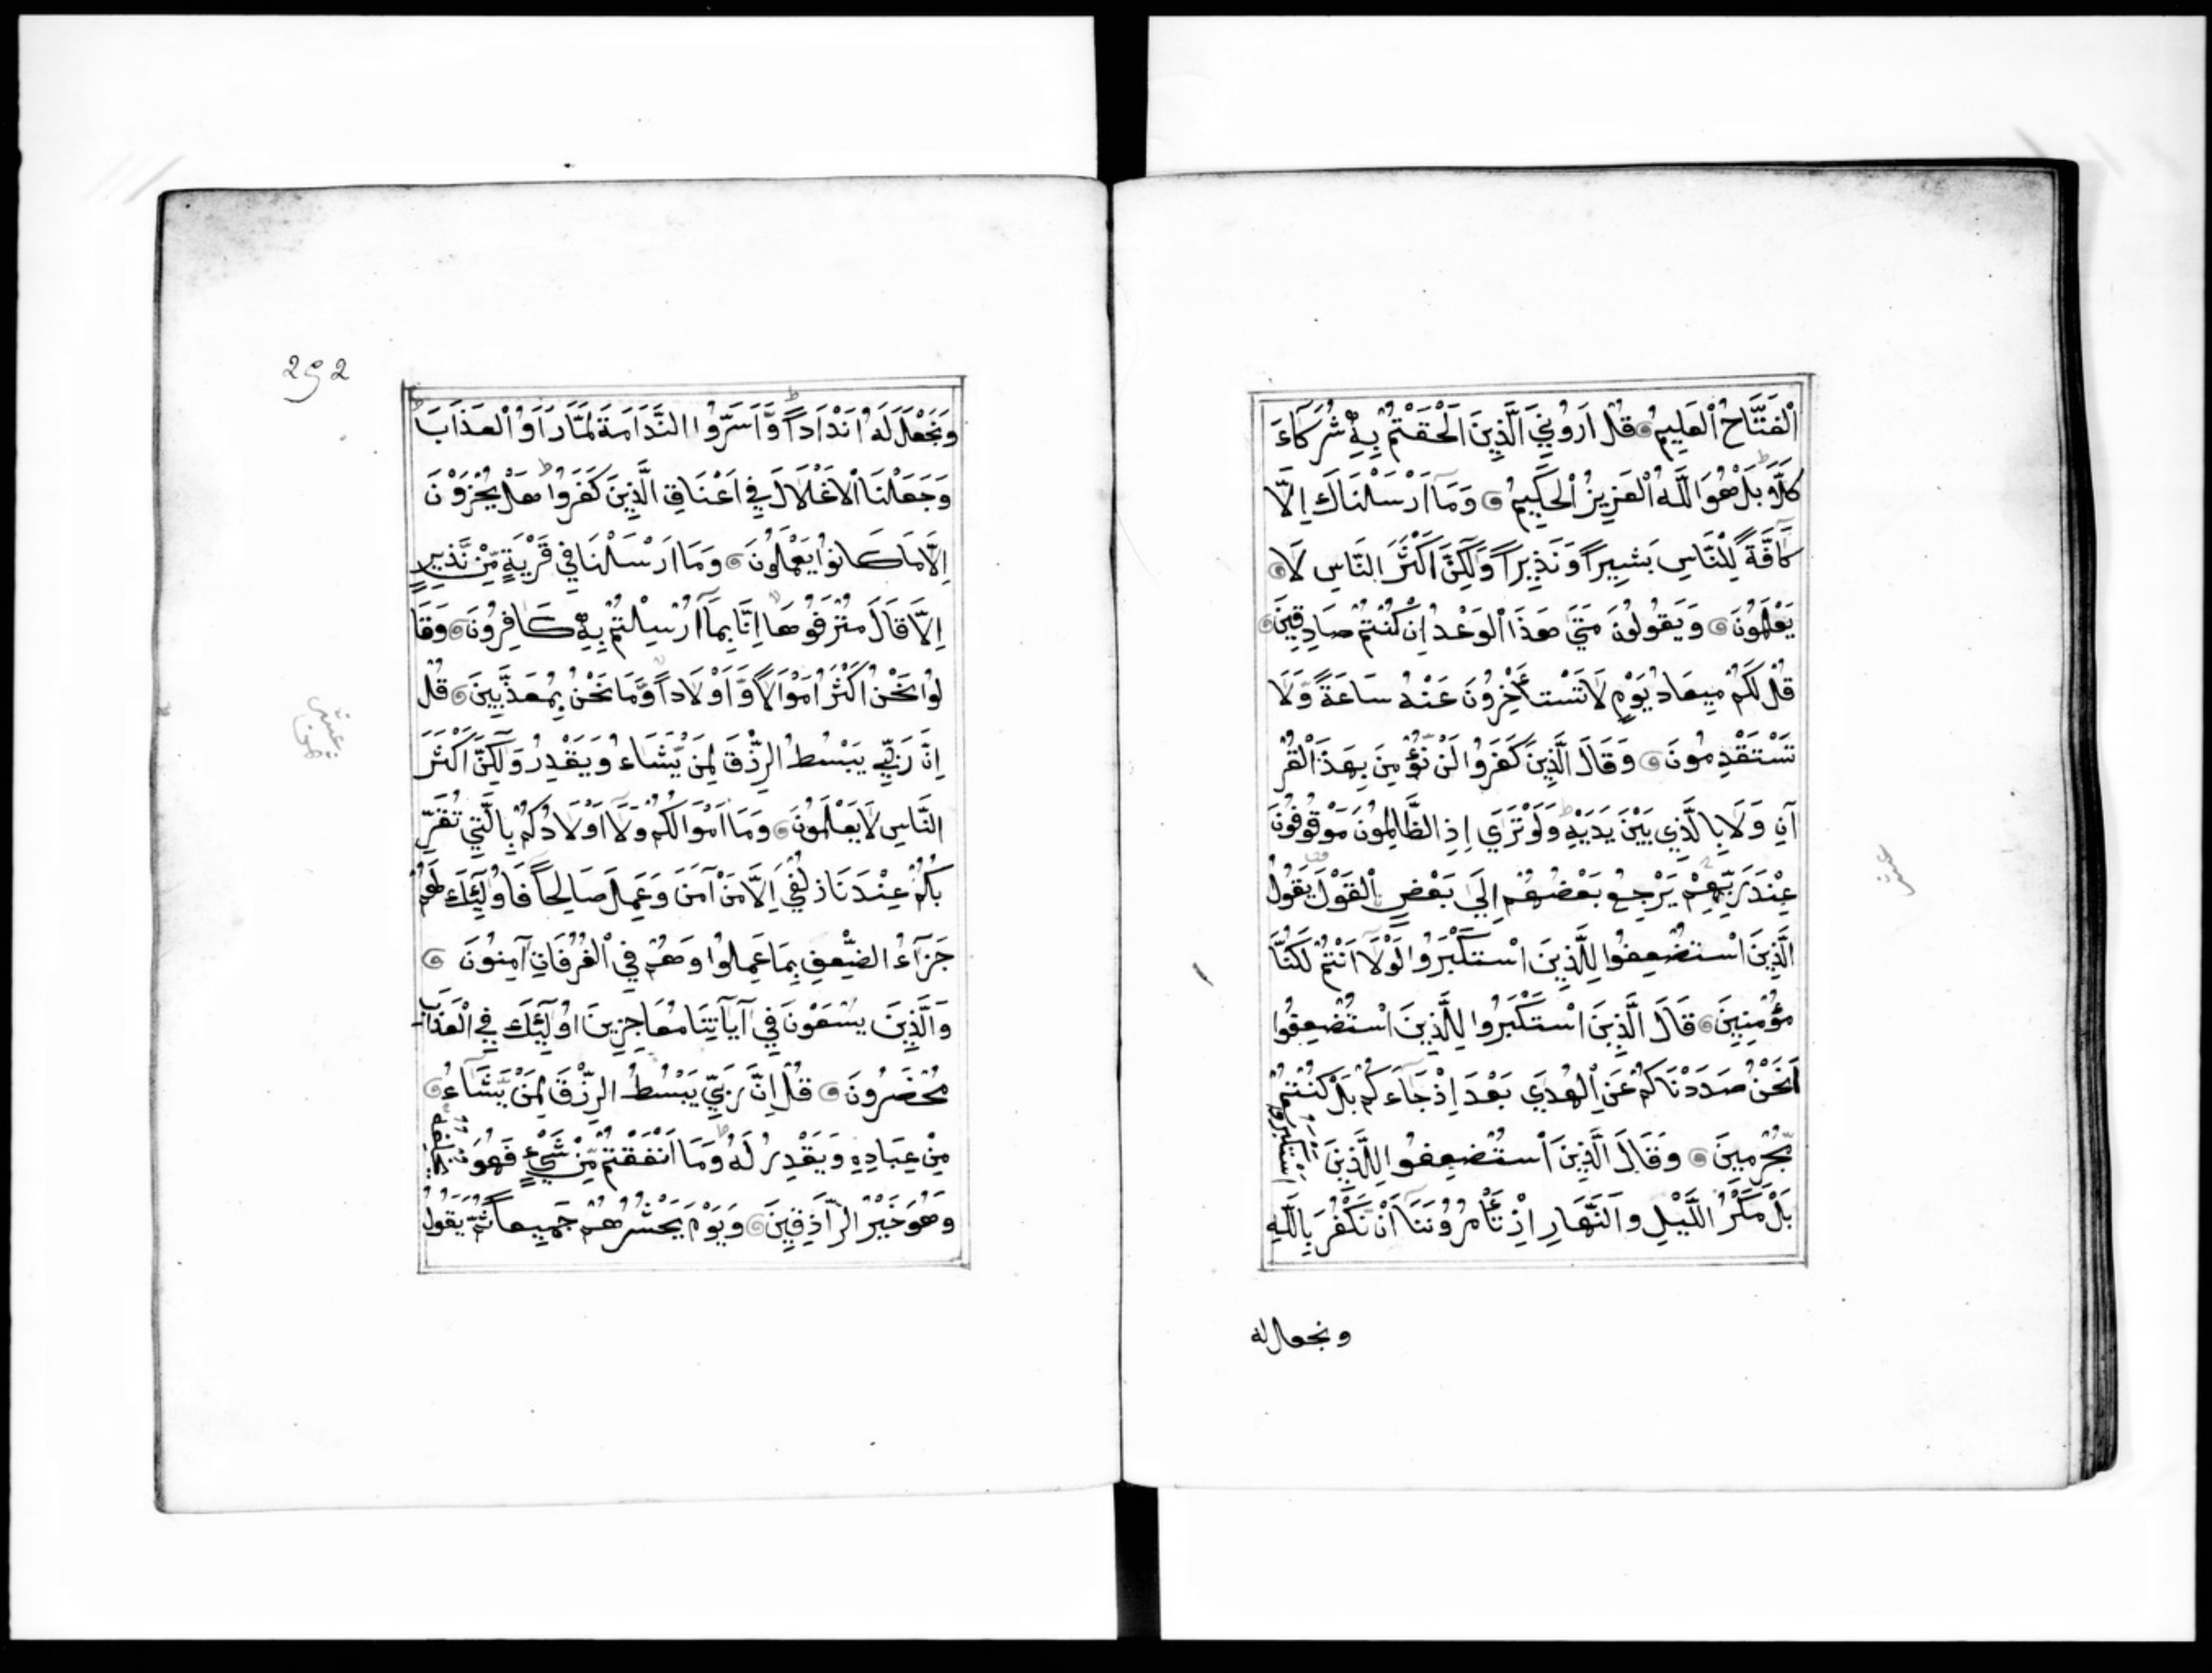 اَلْفَتَّاحُ الْعَلِيمُ قُلْ اَرُونِيَ الَّذِينَ اَلْحَقْتُمْ بِهِ شُرَكَاءَ
كَلَّا بَلْ هُوَ اللَّهُ الْعَزِيزُ الْحَكِيمُ وَمَا اَرْسَلْنَاكَ اِلَّا
كَافَّةً لِلنَّاسِ بَشِيرًا وَنَذِيرًا وَلَكِنَّ اَكْثَرَ النَّاسِ لَا
يَعْلَمُونَ وَيَقُولُونَ مَتَى هَذَا الْوَعْدُ اِنْ كُنْتُمْ صَادِقِينَ
قُلْ لَكُمْ مِيعَادُ يَوْمٍ لَا تَسْتَأْخِرُونَ عَنْهُ سَاعَةً وَلَا
تَسْتَقْدِمُونَ وَقَالَ الَّذِينَ كَفَرُوا لَنْ نُؤْمِنَ بِهَذَا الْقُرْ
آنِ وَلَا بِالَّذِي بَيْنَ يَدَيْهِ وَلَوْ تَرَى اِذِ الظَّالِمُونَ مَوْقُوفُونَ
عِنْدَ رَبِّهِمْ يَرْجِعُ بَعْضُهُمْ اِلَى بَعْضٍ الْقَوْلَ يَقُولُ
الَّذِينَ اسْتُضْعِفُوا لِلَّذِينَ اسْتَكْبَرُوا لَوْلَا اَنْتُمْ لَكُنَّا
مُؤْمِنِينَ قَالَ الَّذِينَ اسْتَكْبَرُوا لِلَّذِينَ اسْتُضْعِفُوا
اَنَحْنُ صَدَدْنَاكُمْ عَنِ الْهُدَى بَعْدَ اِذْ جَاءَكُمْ بَلْ كُنْتُمْ
مُجْرِمِينَ وَقَالَ الَّذِينَ اسْتُضْعِفُوا لِلَّذِينَ اسْتَكْبَرُوا
بَلْ مَكْرُ اللَّيْلِ وَالنَّهَارِ اِذْ تَأْمُرُونَنَا اَنْ نَكْفُرَ بِاللَّهِ
ونجعل له
292
وَنَجْعَلَ لَهُ اَنْدَادًا وَاَسَرُّوا النَّدَامَةَ لَمَّا رَاَوُا الْعَذَابَ
وَجَعَلْنَا الْاَغْلَالَ فِي اَعْنَاقِ الَّذِينَ كَفَرُوا هَلْ يُجْزَوْنَ
اِلَّا مَا كَانُوا يَعْمَلُونَ وَمَا اَرْسَلْنَا فِي قَرْيَةٍ مِنْ نَذِيرٍ
اِلَّا قَالَ مُتْرَفُوهَا اِنَّا بِمَا اُرْسِلْتُمْ بِهِ كَافِرُونَ وَقَا
لُوا نَحْنُ اَكْثَرُ اَمْوَالًا وَاَوْلَادًا وَمَا نَحْنُ بِمُعَذَّبِينَ قُلْ
اِنَّ رَبِّي يَبْسُطُ الرِّزْقَ لِمَنْ يَشَاءُ وَيَقْدِرُ وَلَكِنَّ اَكْثَرَ
النَّاسِ لَا يَعْلَمُونَ وَمَا اَمْوَالُكُمْ وَلَا اَوْلَادُكُمْ بِالَّتِي تُقَرِّ
بُكُمْ عِنْدَنَا زُلْفَى اِلَّا مَنْ آمَنَ وَعَمِلَ صَالِحًا فَاُولَئِكَ لَهُمْ
جَزَاءُ الضِّعْفِ بِمَا عَمِلُوا وَهُمْ فِي الْغُرُفَاتِ آمِنُونَ
وَالَّذِينَ يَسْعَوْنَ فِي آيَاتِنَا مُعَاجِزِينَ اُولَئِكَ فِي الْعَذَابِ
مُحْضَرُونَ قُلْ اِنَّ رَبِّي يَبْسُطُ الرِّزْقَ لِمَنْ يَشَاءُ
مِنْ عِبَادِهِ وَيَقْدِرُ لَهُ وَمَا اَنْفَقْتُمْ مِنْ شَيْءٍ فَهُوَ يُخْلِفُهُ
وَهُوَ خَيْرُ الرَّازِقِينَ وَيَوْمَ يَحْشُرُهُمْ جَمِيعًا ثُمَّ يَقُولُ